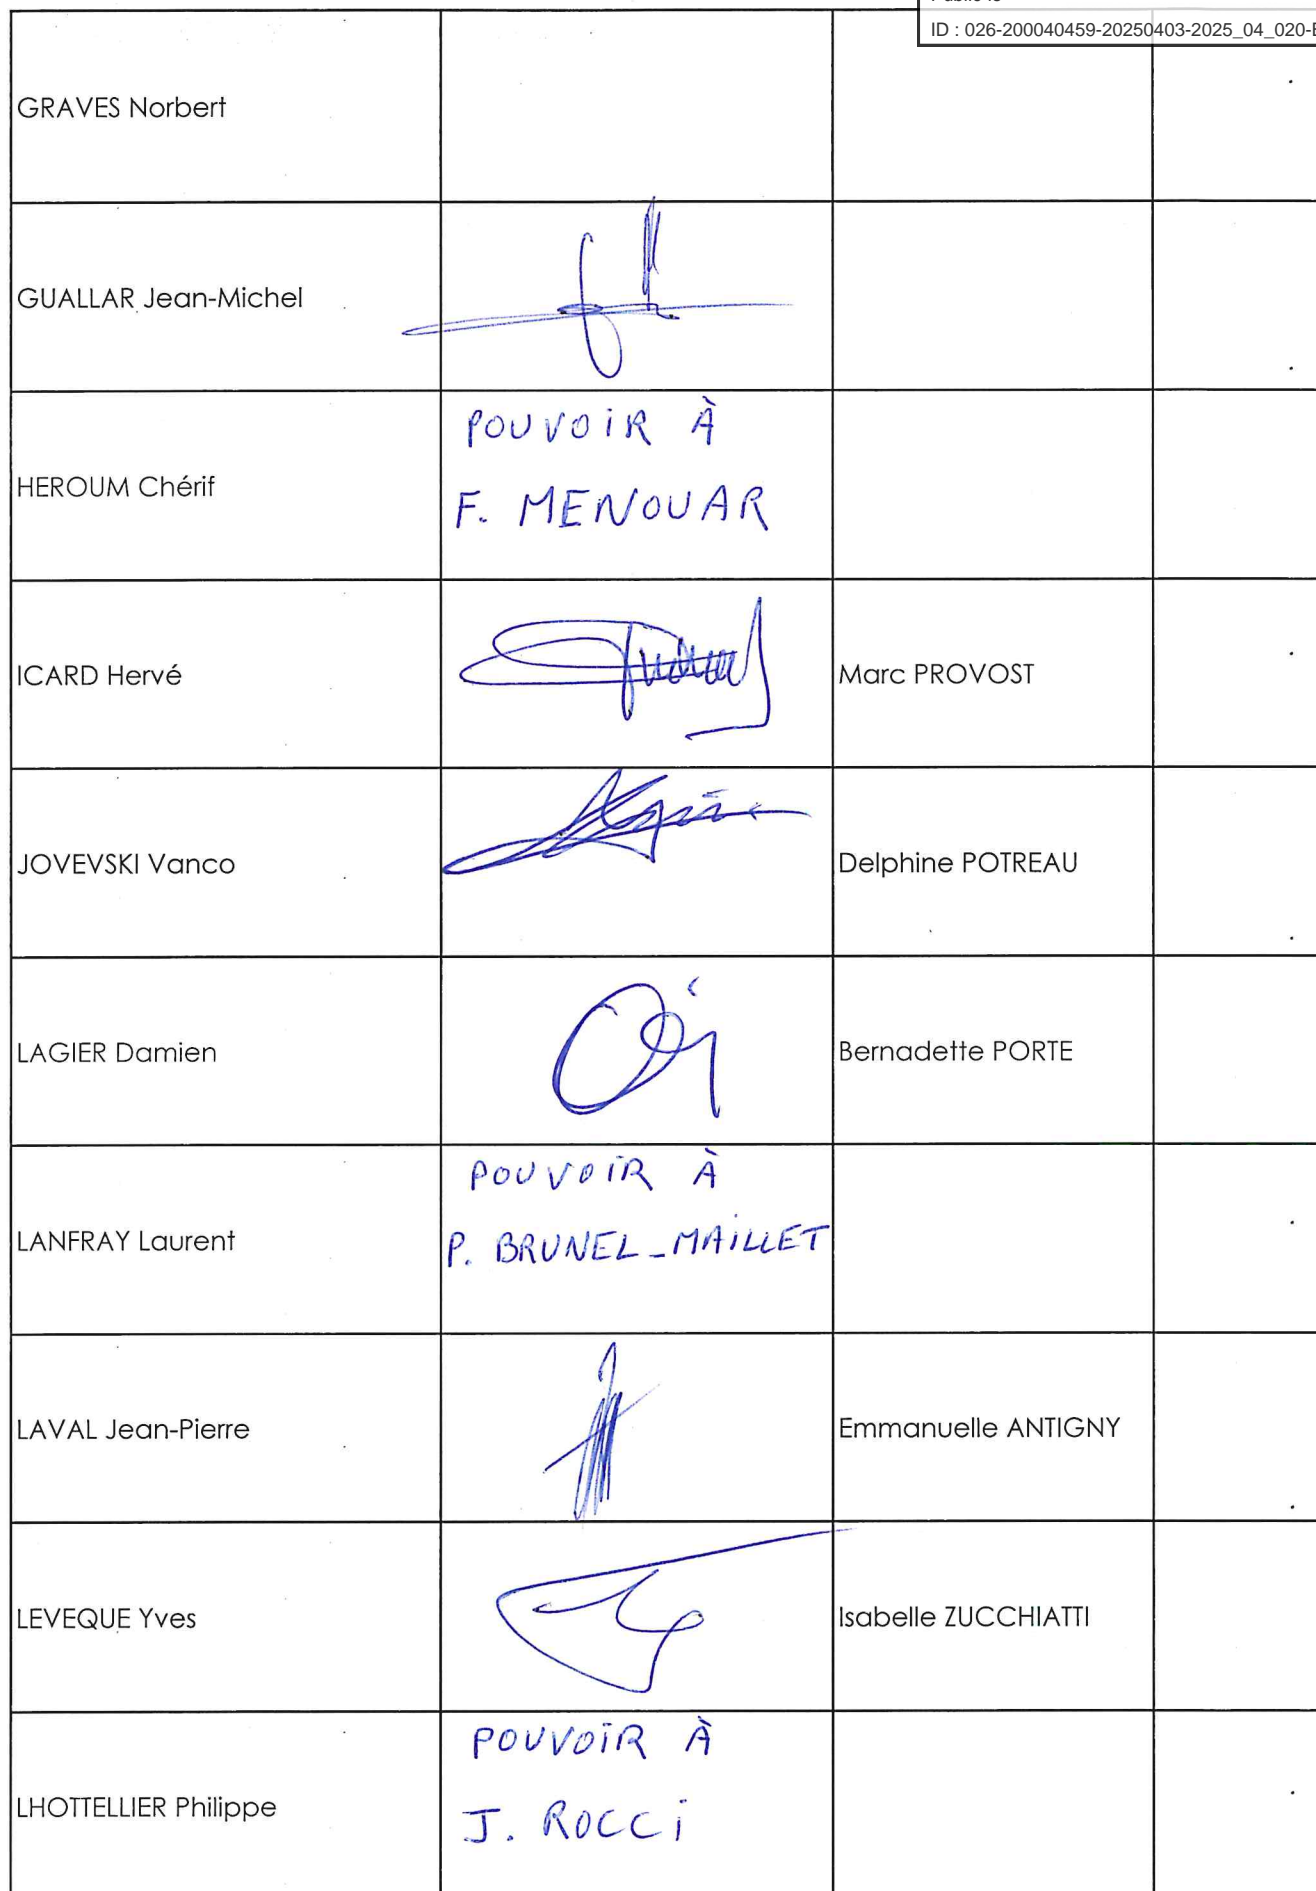 ID : 026-200040459-20250403-2025_04_020-
GRAVES Norbert
GUALLAR Jean-Michel
HEROUM Chérif
POUVOIR À
F. MENOUAR
ICARD Hervé
Marc PROVOST
JOVEVSKI Vanco
Delphine POTREAU
LAGIER Damien
Bernadette PORTE
LANFRAY Laurent
POUVOIR À
P. BRUNEL_MAILLET
LAVAL Jean-Pierre
Emmanuelle ANTIGNY
LEVEQUE Yves
Isabelle ZUCCHIATTI
LHOTTELLIER Philippe
POUVOIR À
J. ROCCI